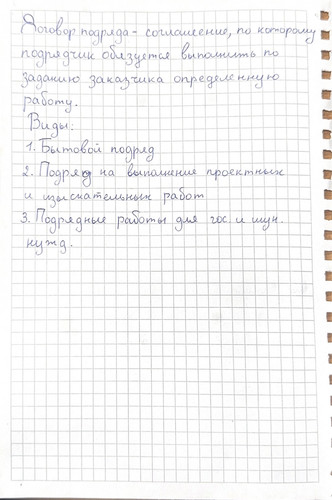 Договор подряда - соглашение, по которому
подрядчик обязуется выполнить по
заданию заказчика определенную
работу.
Виды:
1. Бытовой подряд
2. Подряд на выполнение проектных
и изыскательных работ
3. Подрядные работы для гос. и мун.
нужд.